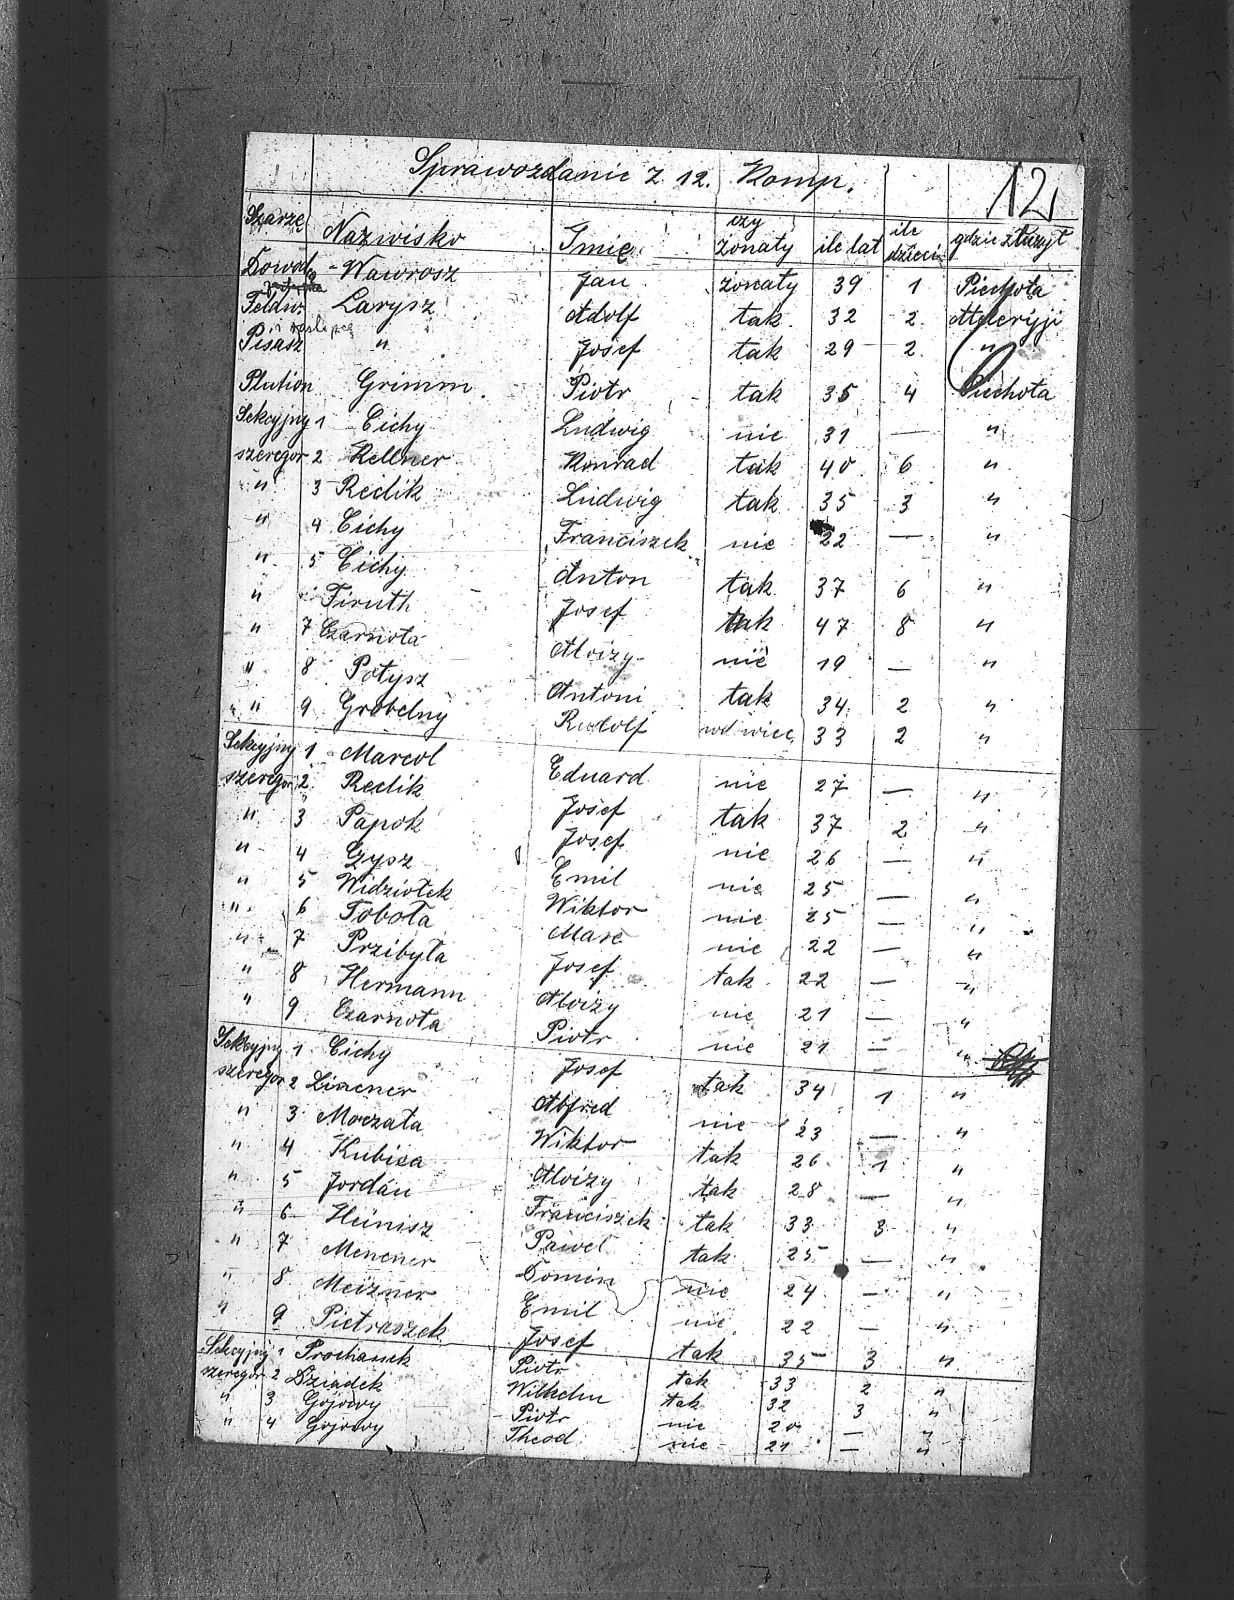 Sprawozdanie z 12. Komp. 12
Szarze Nazwisko Imię czy żonaty ile lat ile dzieci gdzie służył
Dowodz - Wawrosz Jan żonaty 39 1 Piechota
Feldw. Larysz Adolf tak 32 2
i zastępca
Pisasz " Josef tak 29 2 "
Plution Grimm Piotr tak 35 4 Piechota
Sekcyjny 1 Cichy Ludwig nie 31 — "
szeregor 2 Kellner Konrad tak 40 6 "
" 3 Reclik Ludwig tak 35 3 "
" 4 Cichy Franciszek nie 22 — "
" 5 Cichy Anton tak 37 6 "
" Firuth Josef tak 47 8 "
" 7 Czarnota Aloizy nie 19 — "
" 8 Potysz Antoni tak 34 2 "
" 9 Grobelny Rudolf wdowiec 33 2 "
Sekcyjny 1 Marcol Eduard nie 27 — "
szeregor 2 Reclik Josef tak 37 2 "
" 3 Papok Josef nie 26 — "
" 4 Gysz Emil nie 25 — "
" 5 Widziołek Wiktor nie 25 — "
" 6 Toboła Marc nie 22 — "
" 7 Przibyła Josef tak 22 — "
" 8 Hermann Aloizy nie 21 — "
" 9 Czarnota Piotr nie 21 — "
Sekcyjny 1 Cichy Josef tak 34 1 "
szeregor 2 Lincner Alfred nie 23 — "
" 3 Moczała Wiktor tak 26 1 "
" 4 Kubica Aloizy tak 28 — "
" 5 Jordan Franciszek tak 33 3 "
" 6 Heinisz Paweł tak 25 — "
" 7 Mencner Domin nie 24 — "
" 8 Meizner Emil nie 22 — "
" 9 Pietraszek Josef tak 35 3 "
Sekcyjny 1 Prochasek Piotr tak 33 2 "
szeregor 2 Dziadek Wilhelm tak 32 3 "
" 3 Gojowy Piotr nie 20 — "
" 4 Gojowy Theod nie 21 — "